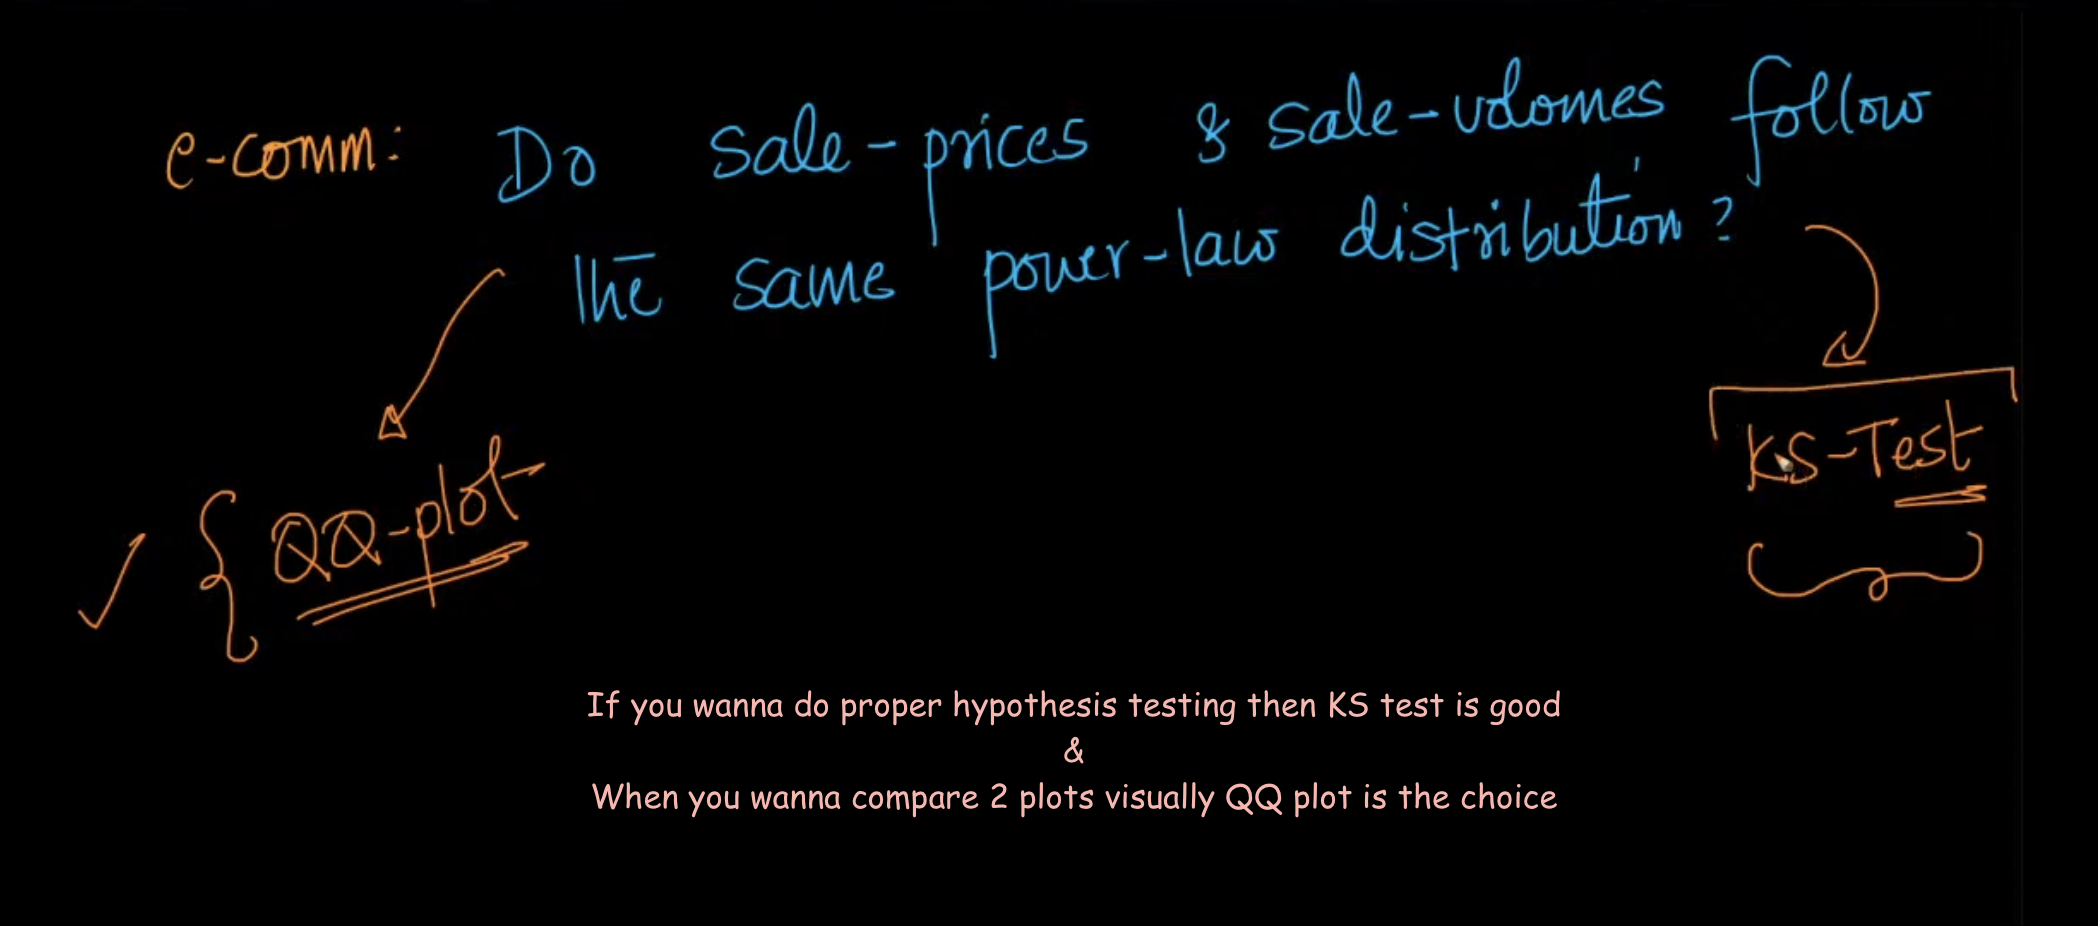 e-comm: Do sale-prices & sale-volomes follow
the same power-law distribution?
QQ-plot
KS-Test
If you wanna do proper hypothesis testing then KS test is good
&
When you wanna compare 2 plots visually QQ plot is the choice